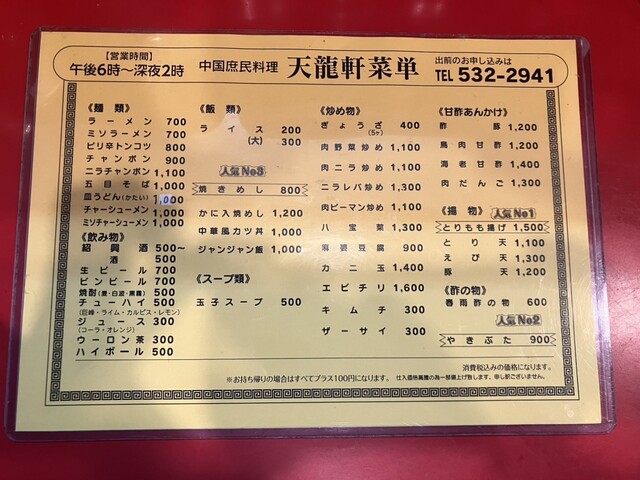 【営業時間】
午後6時～深夜2時
中国庶民料理 天龍軒菜単
出前のお申し込みは
TEL 532-2941
《麺類》
ラーメン 700
ミソラーメン 700
ピリ辛トンコツ 800
チャンポン 900
ニラチャンポン 1,100
五目そば 1,000
皿うどん(かたい) 1,000
チャーシューメン 1,000
ミソチャーシューメン 1,000
《飲み物》
紹興酒 500～
酒 500
生ビール 700
ビンビール 700
焼酎(麦・白波・黒霧) 500
チューハイ 500
(巨峰・ライム・カルピス・レモン)
ジュース 300
(コーラ・オレンジ)
ウーロン茶 300
ハイボール 500
《飯類》
ライス 200
(大) 300
人気No3
焼きめし 800
かに入焼めし 1,200
中華風カツ丼 1,000
ジャンジャン飯 1,000
《スープ類》
玉子スープ 500
《炒め物》
ぎょうざ 400
(5ヶ)
肉野菜炒め 1,100
肉ニラ炒め 1,100
ニラレバ炒め 1,300
肉ピーマン炒め 1,100
八宝菜 1,300
麻婆豆腐 900
カニ玉 1,400
エビチリ 1,600
キムチ 300
ザーサイ 300
《甘酢あんかけ》
酢豚 1,200
鳥肉甘酢 1,200
海老甘酢 1,400
肉だんご 1,300
《揚物》 人気No1
とりもも揚げ 1,500
とり天 1,100
えび天 1,300
豚天 1,200
《酢の物》
春雨酢の物 600
人気No2
やきぶた 900
消費税込みの価格になります。
※お持ち帰りの場合はすべてプラス100円になります。 仕入価格高騰の為一部値上げ致します。申し訳ございません。